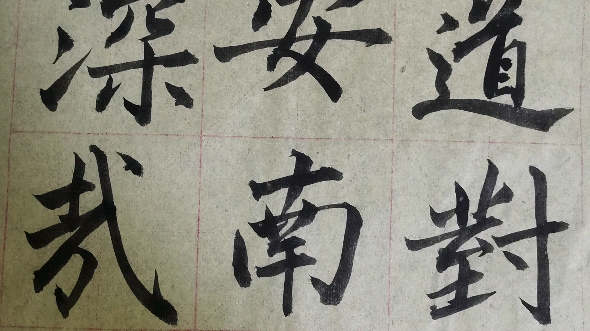 道對
安南
深哉